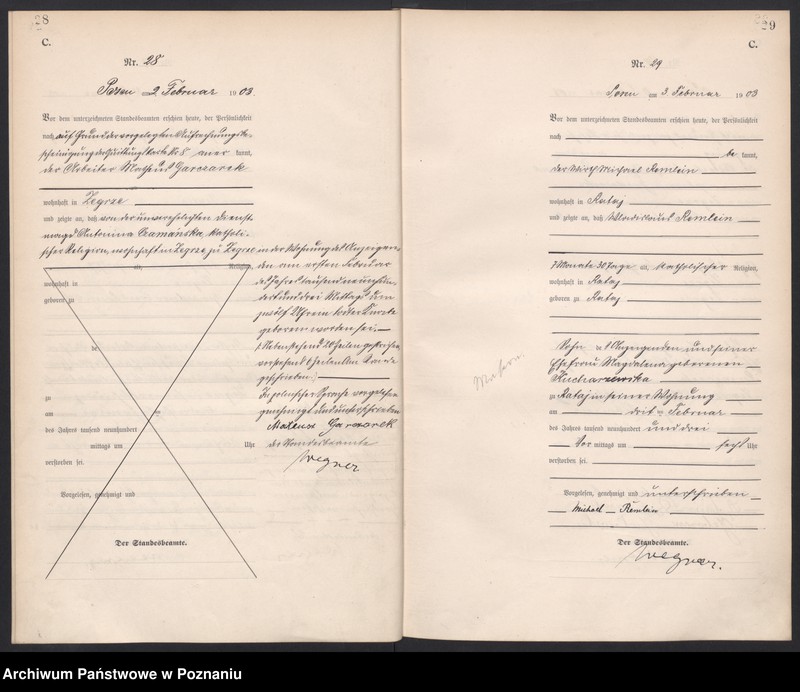 28
C.
Nr. 28
Posen am 2. Februar 1903.
Vor dem unterzeichneten Standesbeamten erschien heute, der Persönlichkeit
nach auf Grund der vorgelegten Aufrechnungsbe-
scheinigung der Quittungskarte No 8 aner kannt,
der Arbeiter Matheus Garczarek
wohnhaft in Zegrze
und zeigte an, daß von der unverehelichten Dienst-
magd Antonina Czamańska, katholi-
scher Religion, wohnhaft in Zegrze, zu Zegrze in der Wohnung des Anzeigen-
den am ersten Februar
des Jahres tausend neunhun-
dert und drei Mittags um
zwölf Uhr ein todter Knabe
geboren worden sei.
Nebenstehend 20 Zeilen gestrichen,
vorstehend 6 Zeilen am Rande
geschrieben.
In polnischer Sprache vorgelesen
genehmigt und unterschrieben
Mateusz Garczarek
der Standesbeamte
Wegner
alt, Religion,
wohnhaft in
geboren zu
de
zu
am
des Jahres tausend neunhundert
mittags um Uhr
verstorben sei.
Vorgelesen, genehmigt und
Der Standesbeamte.
29
C.
Nr. 29
Posen am 3. Februar 1903
Vor dem unterzeichneten Standesbeamten erschien heute, der Persönlichkeit
nach
be kannt,
der Wirth Michael Remlein
wohnhaft in Rataj
und zeigte an, daß Wladislaus Remlein
7 Monate 30 Tage alt, katholischer Religion,
wohnhaft in Rataj
geboren zu Rataj
Sohn des Anzeigenden und seiner
Ehefrau Magdalena geborenen
Kucharzewska
zu Rataj in seiner Wohnung
am dritten Februar
des Jahres tausend neunhundert und drei
Vor mittags um sechs Uhr
verstorben sei.
Vorgelesen, genehmigt und unterschrieben
Michael Remlein
Der Standesbeamte.
Wegner.
Archiwum Państwowe w Poznaniu